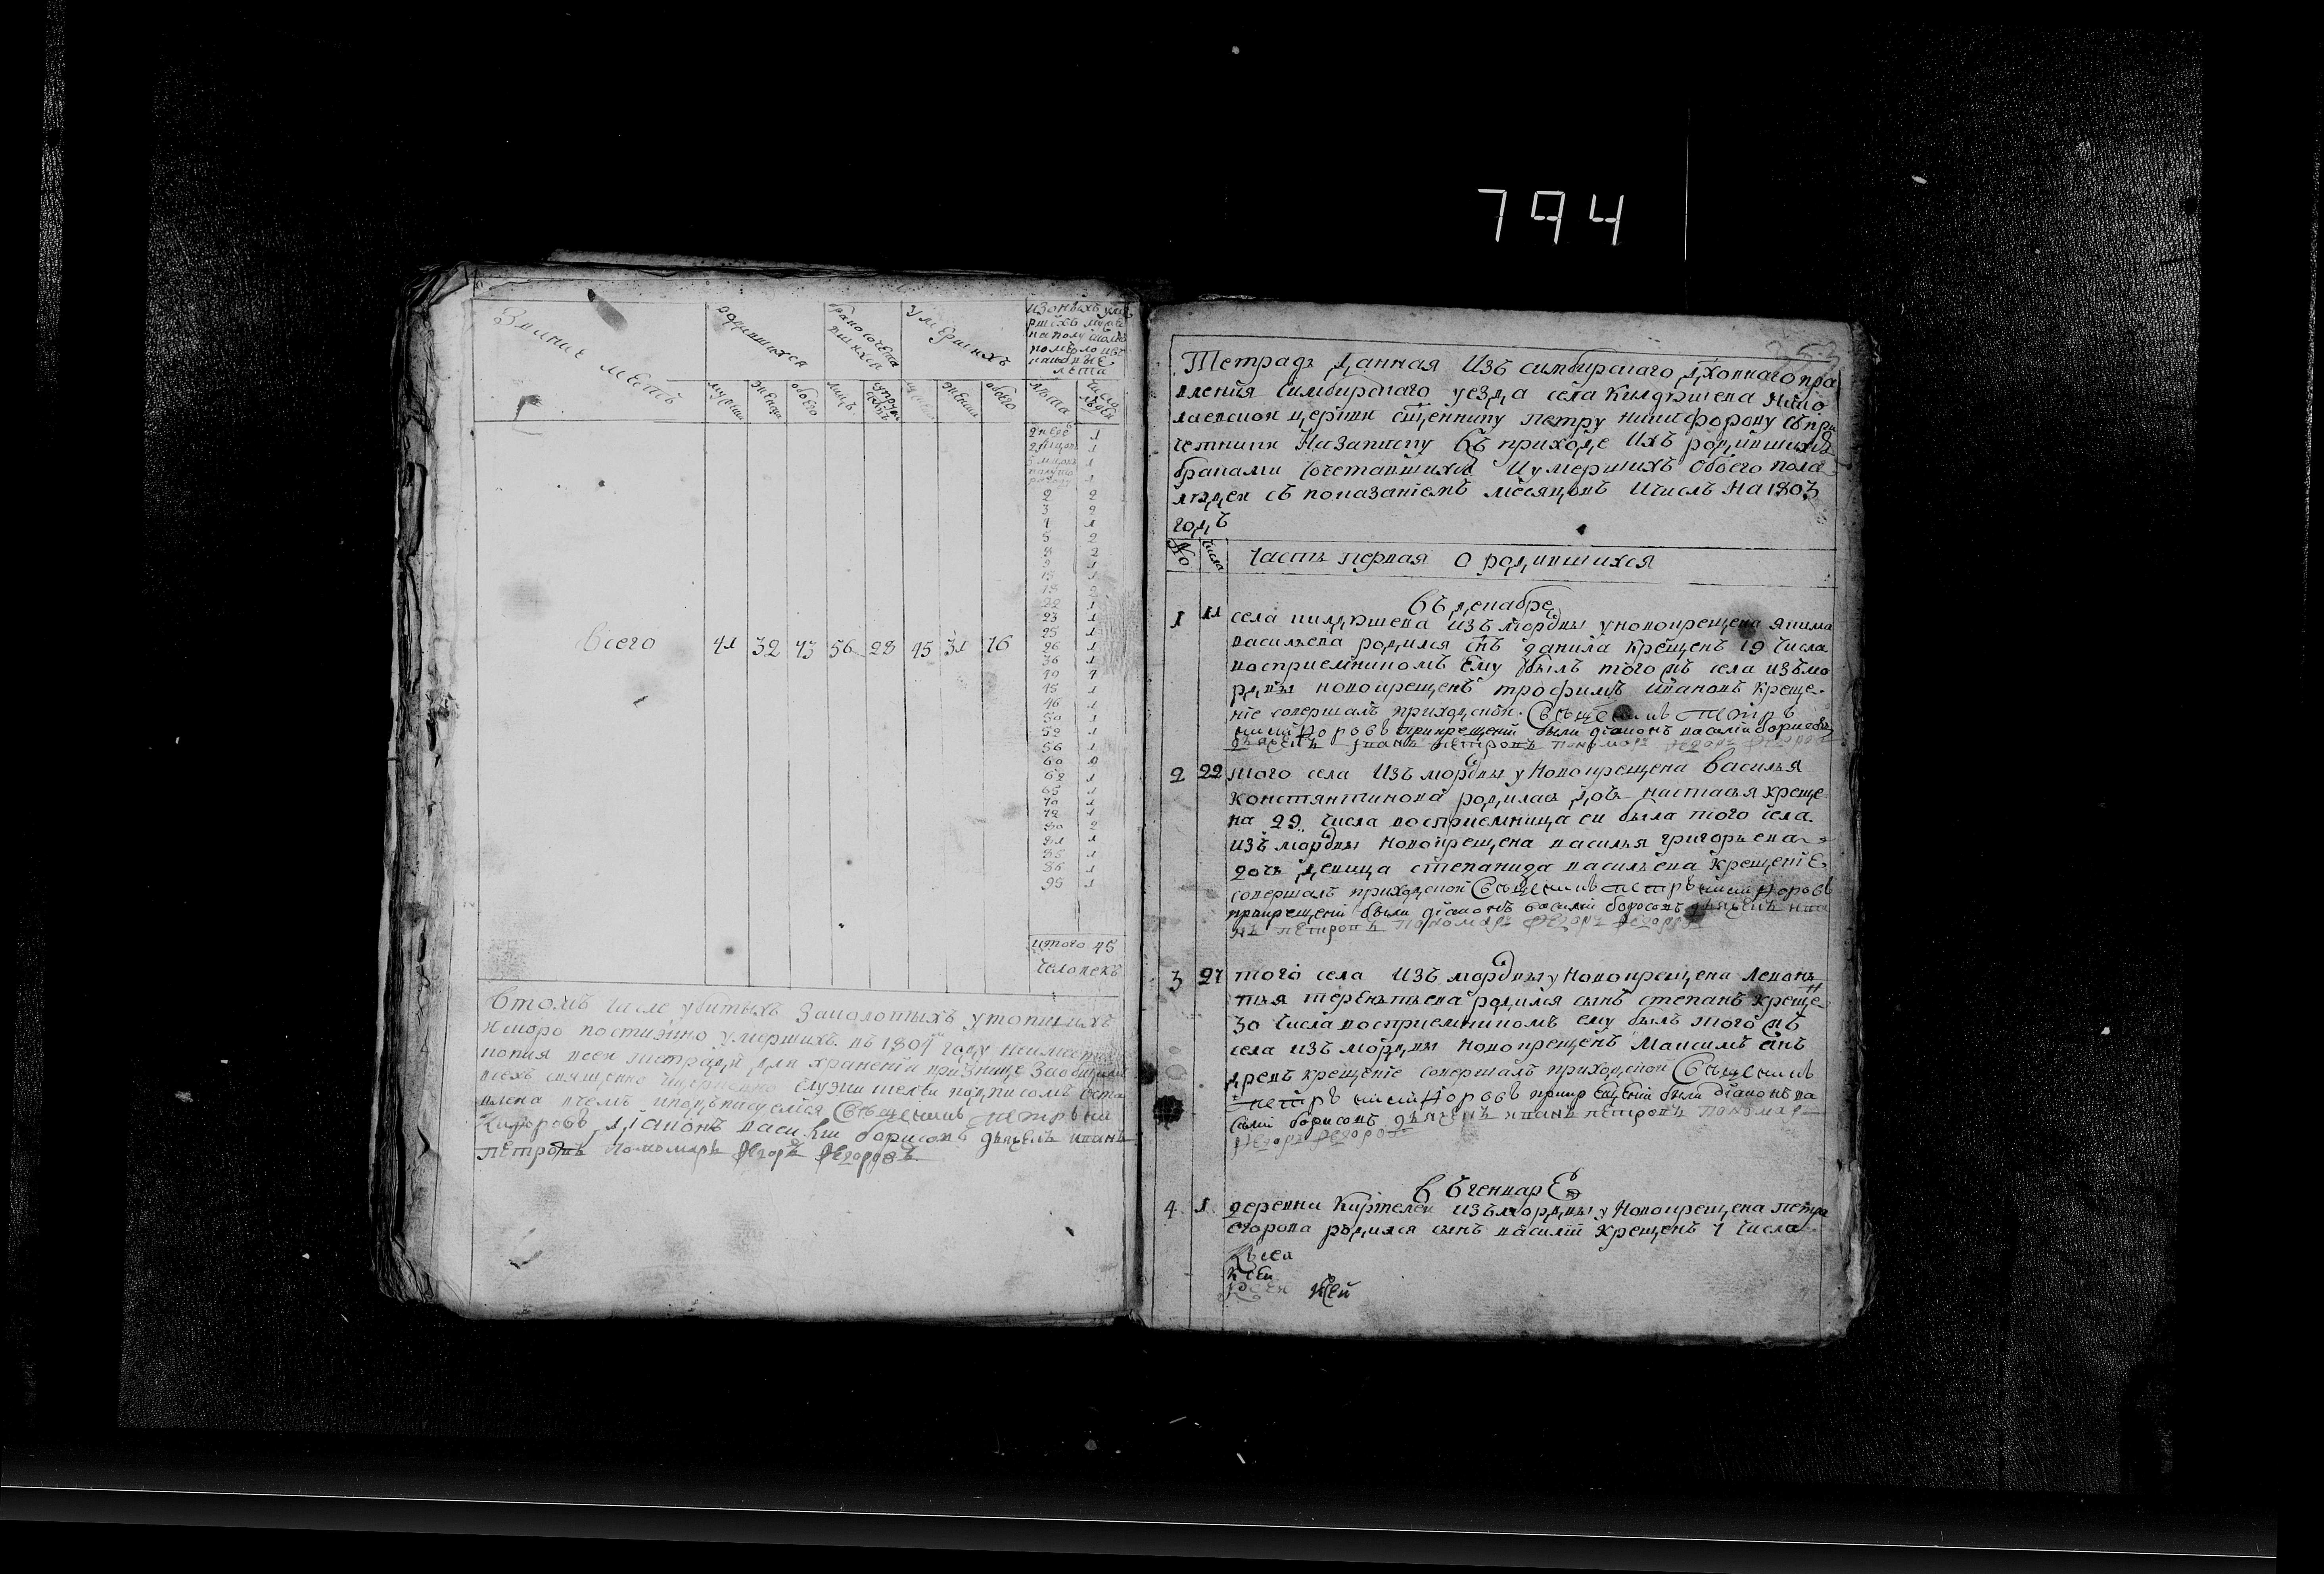 794
Звание местъ
родившихся
бракосочетавшихся
умершихъ
лета
мужеска
женска
обоего
лицъ
женска
обоего
лета
2 2
3 2
4 1
5 2
8 2
9 1
15 1
18 2
22 1
23 1
25 1
26 1
36 1
45 1
46 1
50 1
52 1
56 1
62 1
65 1
70 1
72 1
80 2
81 1
85 1
86 1
95 1
Всего 41 32 73 56 28 45 31 76
итого 45
человекъ
Втомъ числе убитыхъ заколотыхъ утопшихъ
искоро постижно умершихъ въ 1804 году
копия всей тетради для хранения при
всехъ священно служители подписомъ
Священникъ Петръ Ни
кифоровъ Діаконъ васили борисовъ дьячекъ иванъ
петровъ пономарь Фёдоръ Фёдоровъ
253
Тетрадь данная изъ симбирскаго духовнаго пра
вления симбирскаго уезда села килдюшева Нико
лаевской церкви священнику петру никифорову съпри
четники Назаписку Въ приходе ихъ родившихся
браками сочетавшихся Иумершихъ Обоего пола
людеи съ показаніемъ месяцовъ Ичислъ На 1803
годъ
No числа Часть первая О родившихся
Въ декабре
1 11 села килдюшева изъ мордвы уновокрещена якима
васильева родился снъ данила крещенъ 19 числа
восприемникомъ ему былъ того жъ села изъмо
рдвы новокрещенъ трофимъ ивановъ креще-
ніе совершалъ приходской Священникъ Петръ
никифоровъ прикрещеніи были діаконъ василій борисовъ
дьячекъ иванъ петровъ пономарь Фёдоръ Фёдоровъ
2 22 того села Изъ мордвы у Новокрещена василья
константинова родилась дочь настасья креще
на 29 числа восприемница еи была того села
изъ мордвы новокрещена василья григорьева
дочь девица степанида васильева крещеніе
совершалъ приходской Священникъ Петръ никифоровъ
прикрещеніи были діаконъ василій борисовъ дьячекъ ива
нъ петровъ пономарь Фёдоръ Фёдоровъ
3 27 того села Изъ мордвы у Новокрещена Леван
тья терентьева родился сынъ степанъ креще
30 числа восприемникомъ ему былъ того жъ
села изъ мордвы новокрещенъ Максимъ ан
древъ крещеніе совершалъ приходской Священникъ
Петръ никифоровъ прикрещеніи были діаконъ ва
силій борисовъ дьячекъ иванъ петровъ пономарь
Фёдоръ Фёдоровъ
Въ генваре
4 1 деревни Киртелей изъ мордвы у Новокрещена петра
егорова родился сынъ василій крещенъ 4 числа